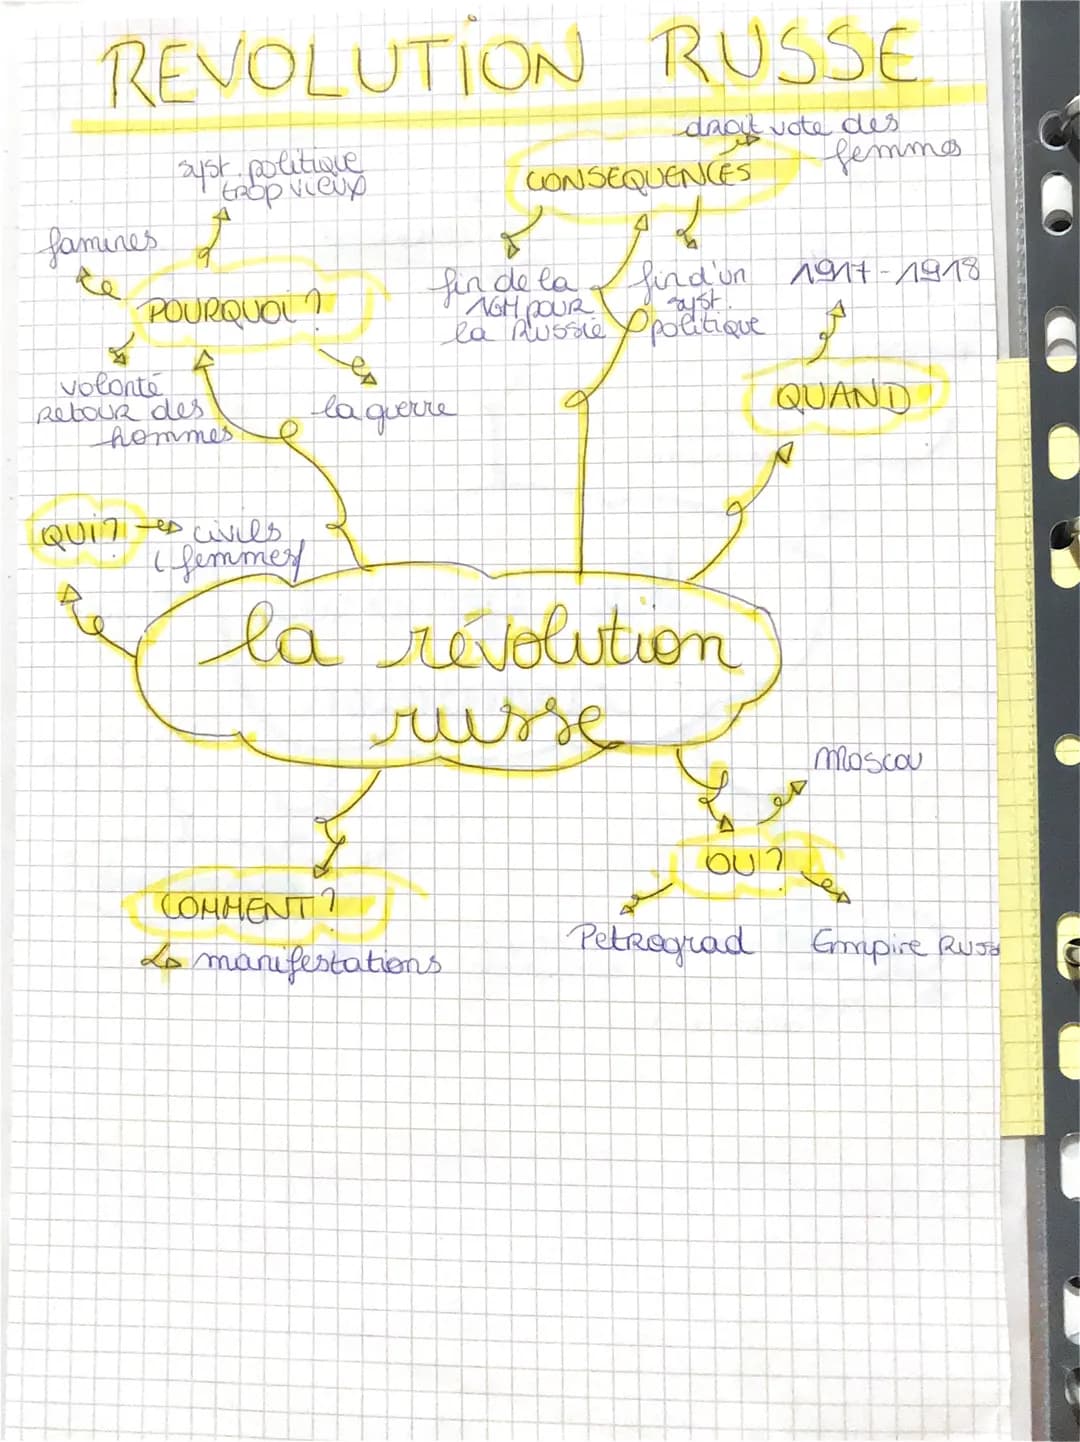 REVOLUTION RUSSE
droit vote des
femmes
CONSEQUENCES
syst. politique
trop vieux
famines
POURQUOI ?
fin de la
1GM pour
la Russie
fin d'un
syst.
politique
1917-1918
QUAND
volonté
retour des
hommes
la guerre
QUI ? civils
(femmes)
la révolution
russe
Moscou
OU ?
COMMENT ?
Petrograd
Empire
manifestations